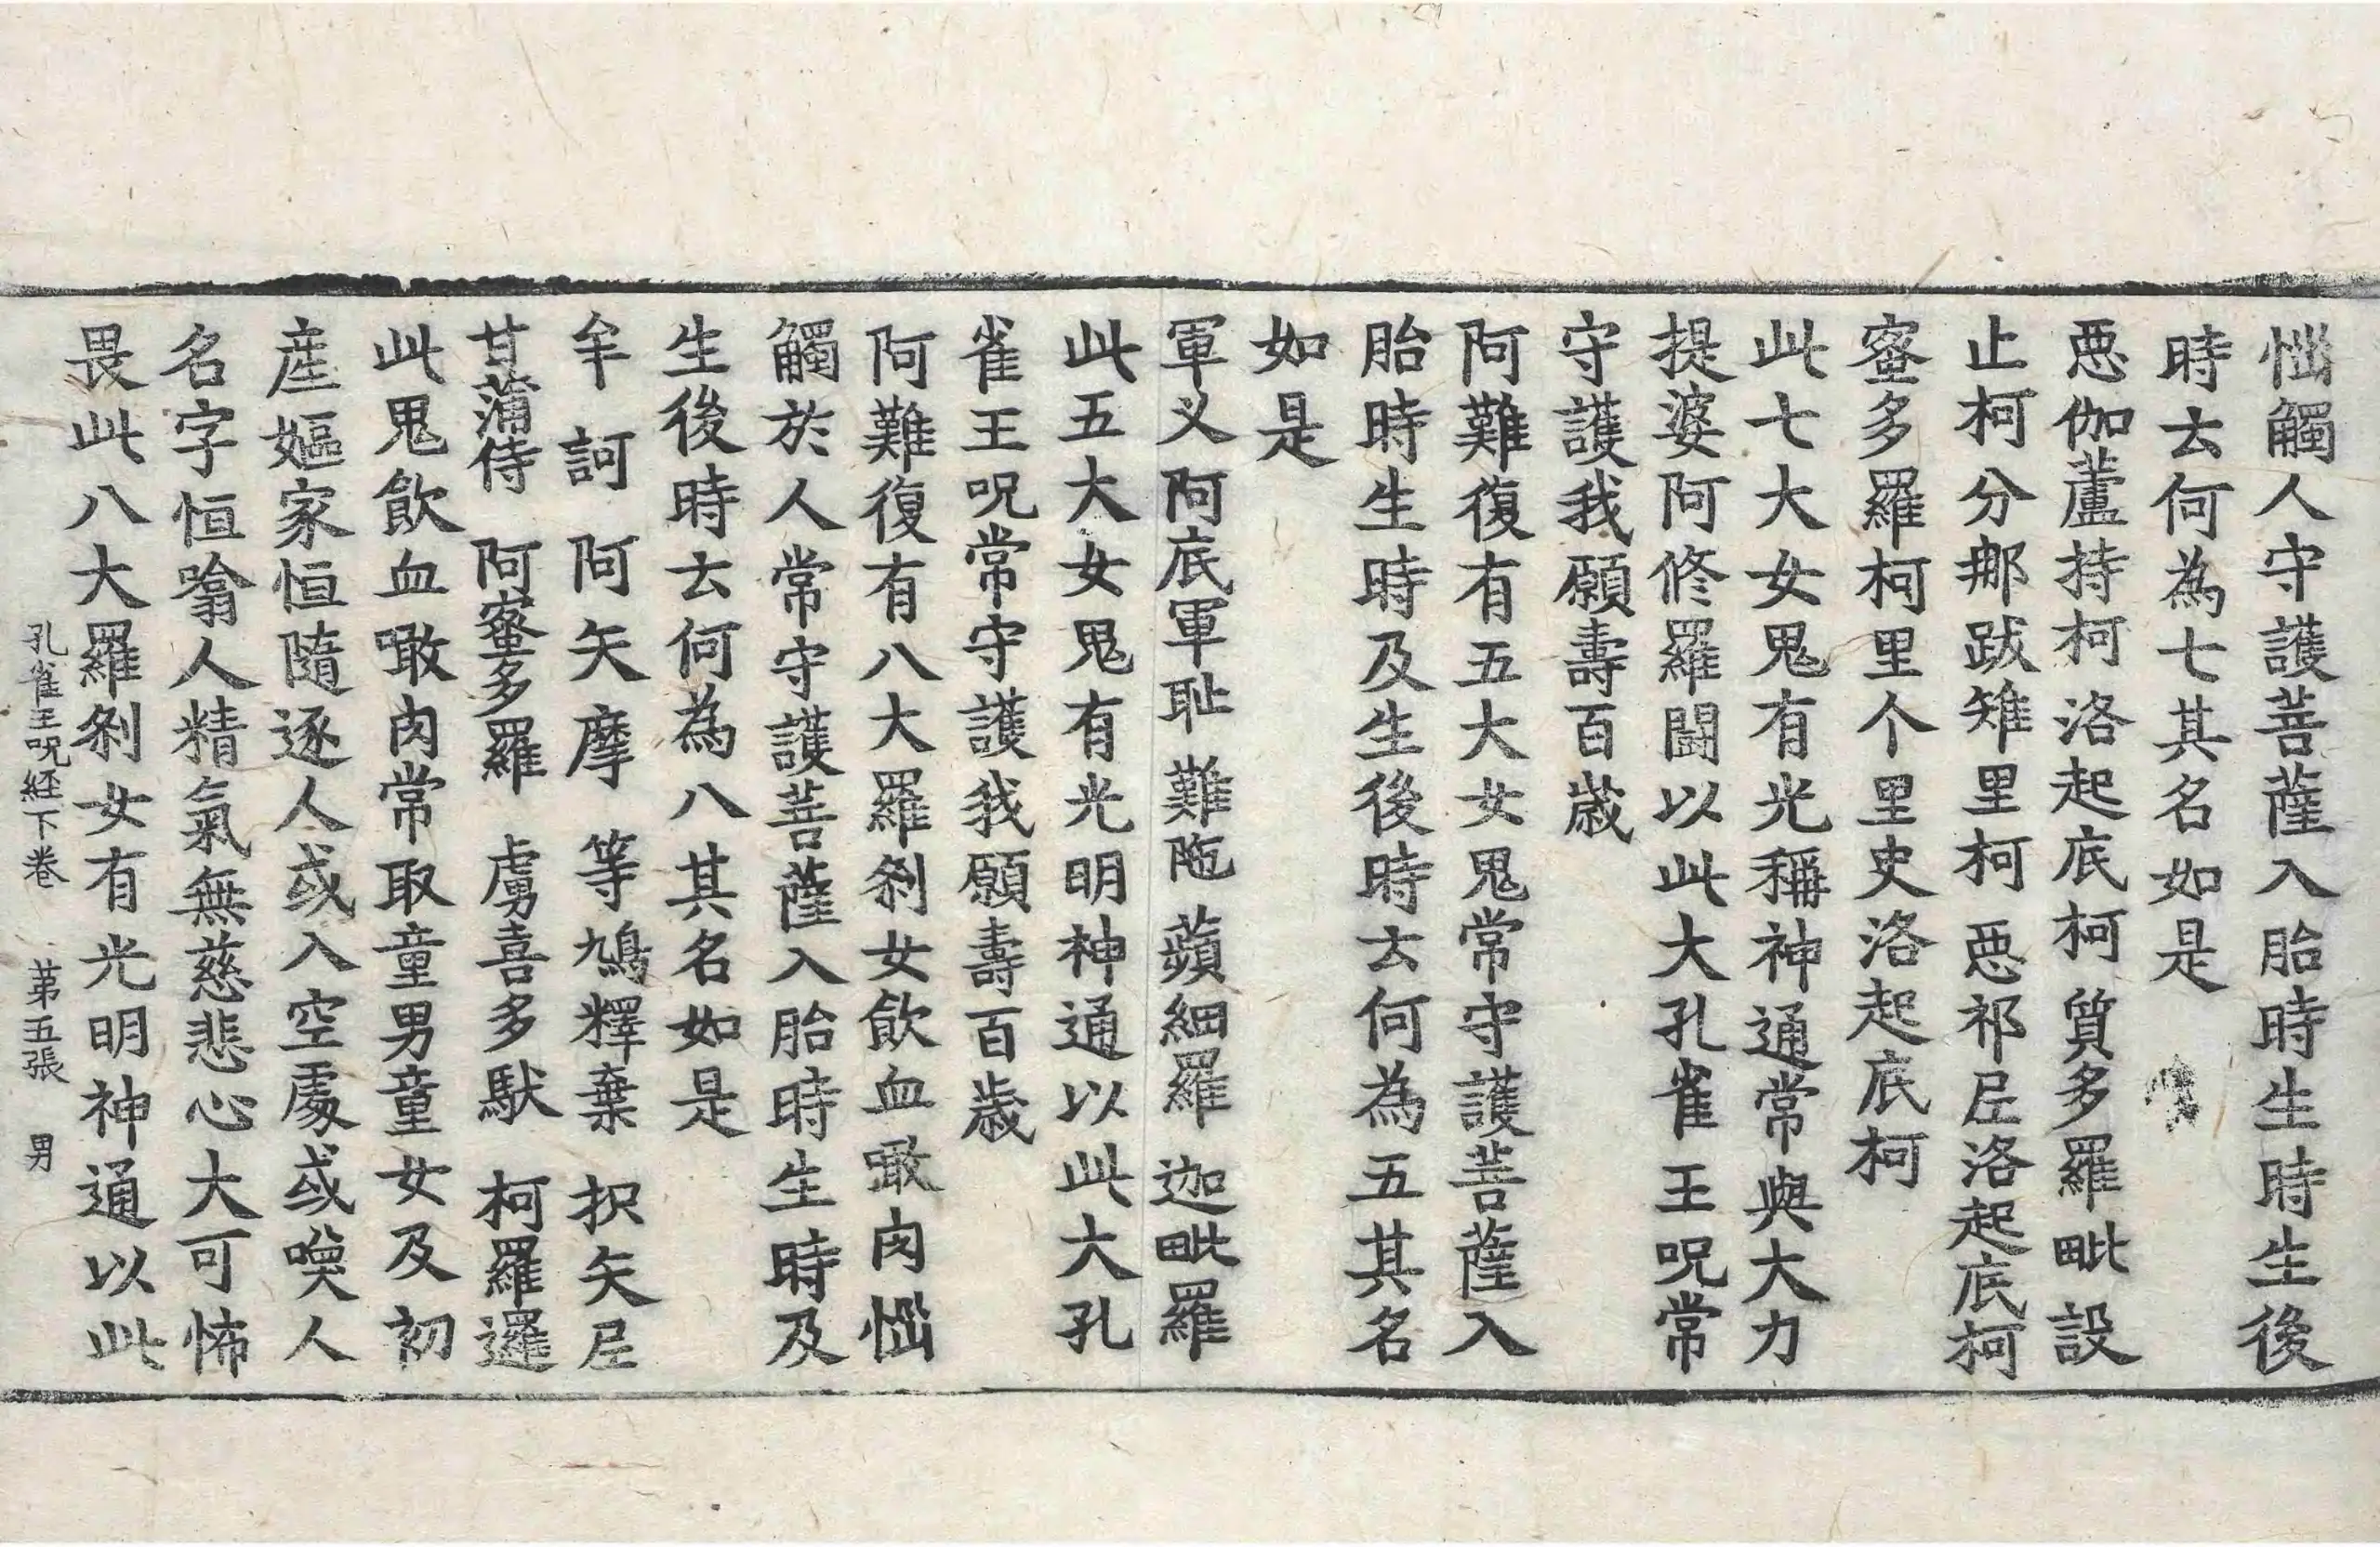 惱觸人守護菩薩入胎時生時生後
時去何為七其名如是
惡伽蘆持柯洛起底柯質多羅毗設
止柯分𨚗跋雉里柯惡祁𡰱洛起底柯
蜜多羅柯里个里史洛起底柯
此七大女鬼有光稱神通常與大力
提婆阿修羅鬪以此大孔雀王呪常
守護我願壽百歲
阿難復有五大女鬼常守護菩薩入
胎時生時及生後時去何為五其名
如是
軍义阿底軍耻難陁蘋細羅迦毗羅
此五大女鬼有光明神通以此大孔
雀王呪常守護我願壽百歲
阿難復有八大羅剎女飲血噉肉惱
觸於人常守護菩薩入胎時生時及
生後時去何為八其名如是
牟訶阿矢摩等鳩釋棄抧矢𡰱
甘蒲侍阿蜜多羅虜喜多馱柯羅邏
此鬼飲血噉肉常取童男童女及初
產嫗家恒隨逐人或入空處或噗人
名字恒噏人精氣無慈悲心大可怖
畏此八大羅剎女有光明神通以此
孔雀王呪経下卷 苐五張 男